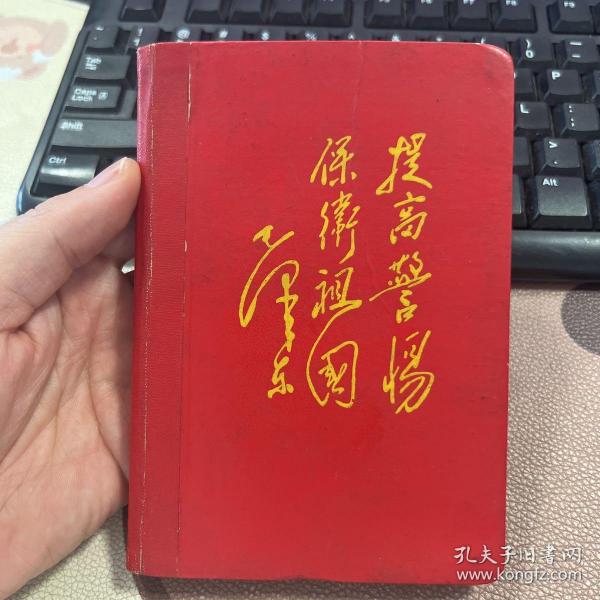 提高警惕
保衛祖國
毛澤东
Tab
Caps
Lock
Shift
Ctrl
Alt
孔夫子旧书网
www.kongfz.com